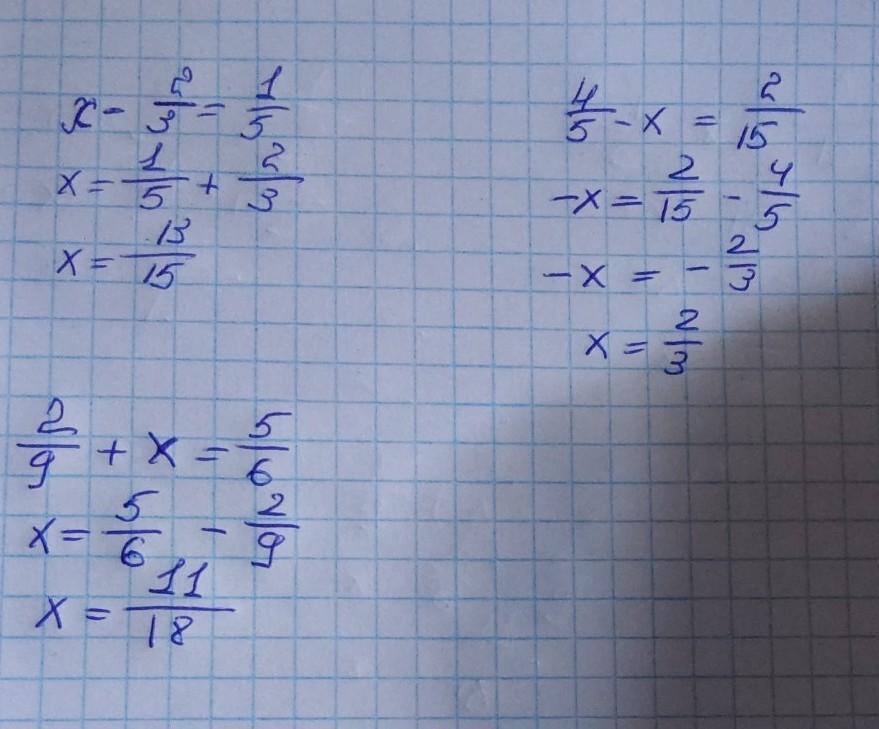 x - 2/3 = 1/5
x = 1/5 + 2/3
x = 13/15
4/5 - x = 2/15
-x = 2/15 - 4/5
-x = - 2/3
x = 2/3
2/9 + x = 5/6
x = 5/6 - 2/9
x = 11/18